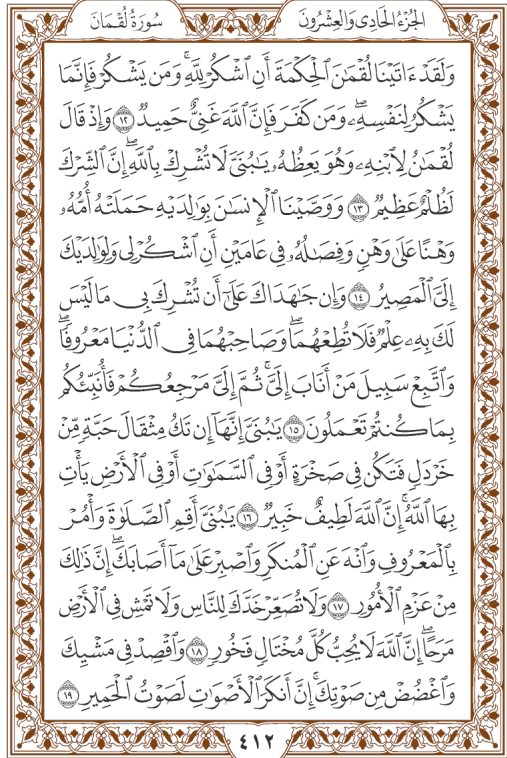 الجزء الحادي والعشرون سورة لقمان
وَلَقَدْ ءَاتَيْنَا لُقْمَٰنَ ٱلْحِكْمَةَ أَنِ ٱشْكُرْ لِلَّهِۚ وَمَن يَشْكُرْ فَإِنَّمَا
يَشْكُرُ لِنَفْسِهِۦۖ وَمَن كَفَرَ فَإِنَّ ٱللَّهَ غَنِىٌّ حَمِيدٌ ١٢ وَإِذْ قَالَ
لُقْمَٰنُ لِٱبْنِهِۦ وَهُوَ يَعِظُهُۥ يَٰبُنَىَّ لَا تُشْرِكْ بِٱللَّهِۖ إِنَّ ٱلشِّرْكَ
لَظُلْمٌ عَظِيمٌ ١٣ وَوَصَّيْنَا ٱلْإِنسَٰنَ بِوَٰلِدَيْهِ حَمَلَتْهُ أُمُّهُۥ
وَهْنًا عَلَىٰ وَهْنٍ وَفِصَٰلُهُۥ فِى عَامَيْنِ أَنِ ٱشْكُرْ لِى وَلِوَٰلِدَيْكَ
إِلَىَّ ٱلْمَصِيرُ ١٤ وَإِن جَٰهَدَاكَ عَلَىٰٓ أَن تُشْرِكَ بِى مَا لَيْسَ
لَكَ بِهِۦ عِلْمٌ فَلَا تُطِعْهُمَاۖ وَصَاحِبْهُمَا فِى ٱلدُّنْيَا مَعْرُوفًاۖ
وَٱتَّبِعْ سَبِيلَ مَنْ أَنَابَ إِلَىَّۚ ثُمَّ إِلَىَّ مَرْجِعُكُمْ فَأُنَبِّئُكُم
بِمَا كُنتُمْ تَعْمَلُونَ ١٥ يَٰبُنَىَّ إِنَّهَآ إِن تَكُ مِثْقَالَ حَبَّةٍ مِّنْ
خَرْدَلٍ فَتَكُن فِى صَخْرَةٍ أَوْ فِى ٱلسَّمَٰوَٰتِ أَوْ فِى ٱلْأَرْضِ يَأْتِ
بِهَا ٱللَّهُۚ إِنَّ ٱللَّهَ لَطِيفٌ خَبِيرٌ ١٦ يَٰبُنَىَّ أَقِمِ ٱلصَّلَوٰةَ وَأْمُرْ
بِٱلْمَعْرُوفِ وَٱنْهَ عَنِ ٱلْمُنكَرِ وَٱصْبِرْ عَلَىٰ مَآ أَصَابَكَۖ إِنَّ ذَٰلِكَ
مِنْ عَزْمِ ٱلْأُمُورِ ١٧ وَلَا تُصَعِّرْ خَدَّكَ لِلنَّاسِ وَلَا تَمْشِ فِى ٱلْأَرْضِ
مَرَحًاۖ إِنَّ ٱللَّهَ لَا يُحِبُّ كُلَّ مُخْتَالٍ فَخُورٍ ١٨ وَٱقْصِدْ فِى مَشْيِكَ
وَٱغْضُضْ مِن صَوْتِكَۚ إِنَّ أَنكَرَ ٱلْأَصْوَٰتِ لَصَوْتُ ٱلْحَمِيرِ ١٩
٤١٢